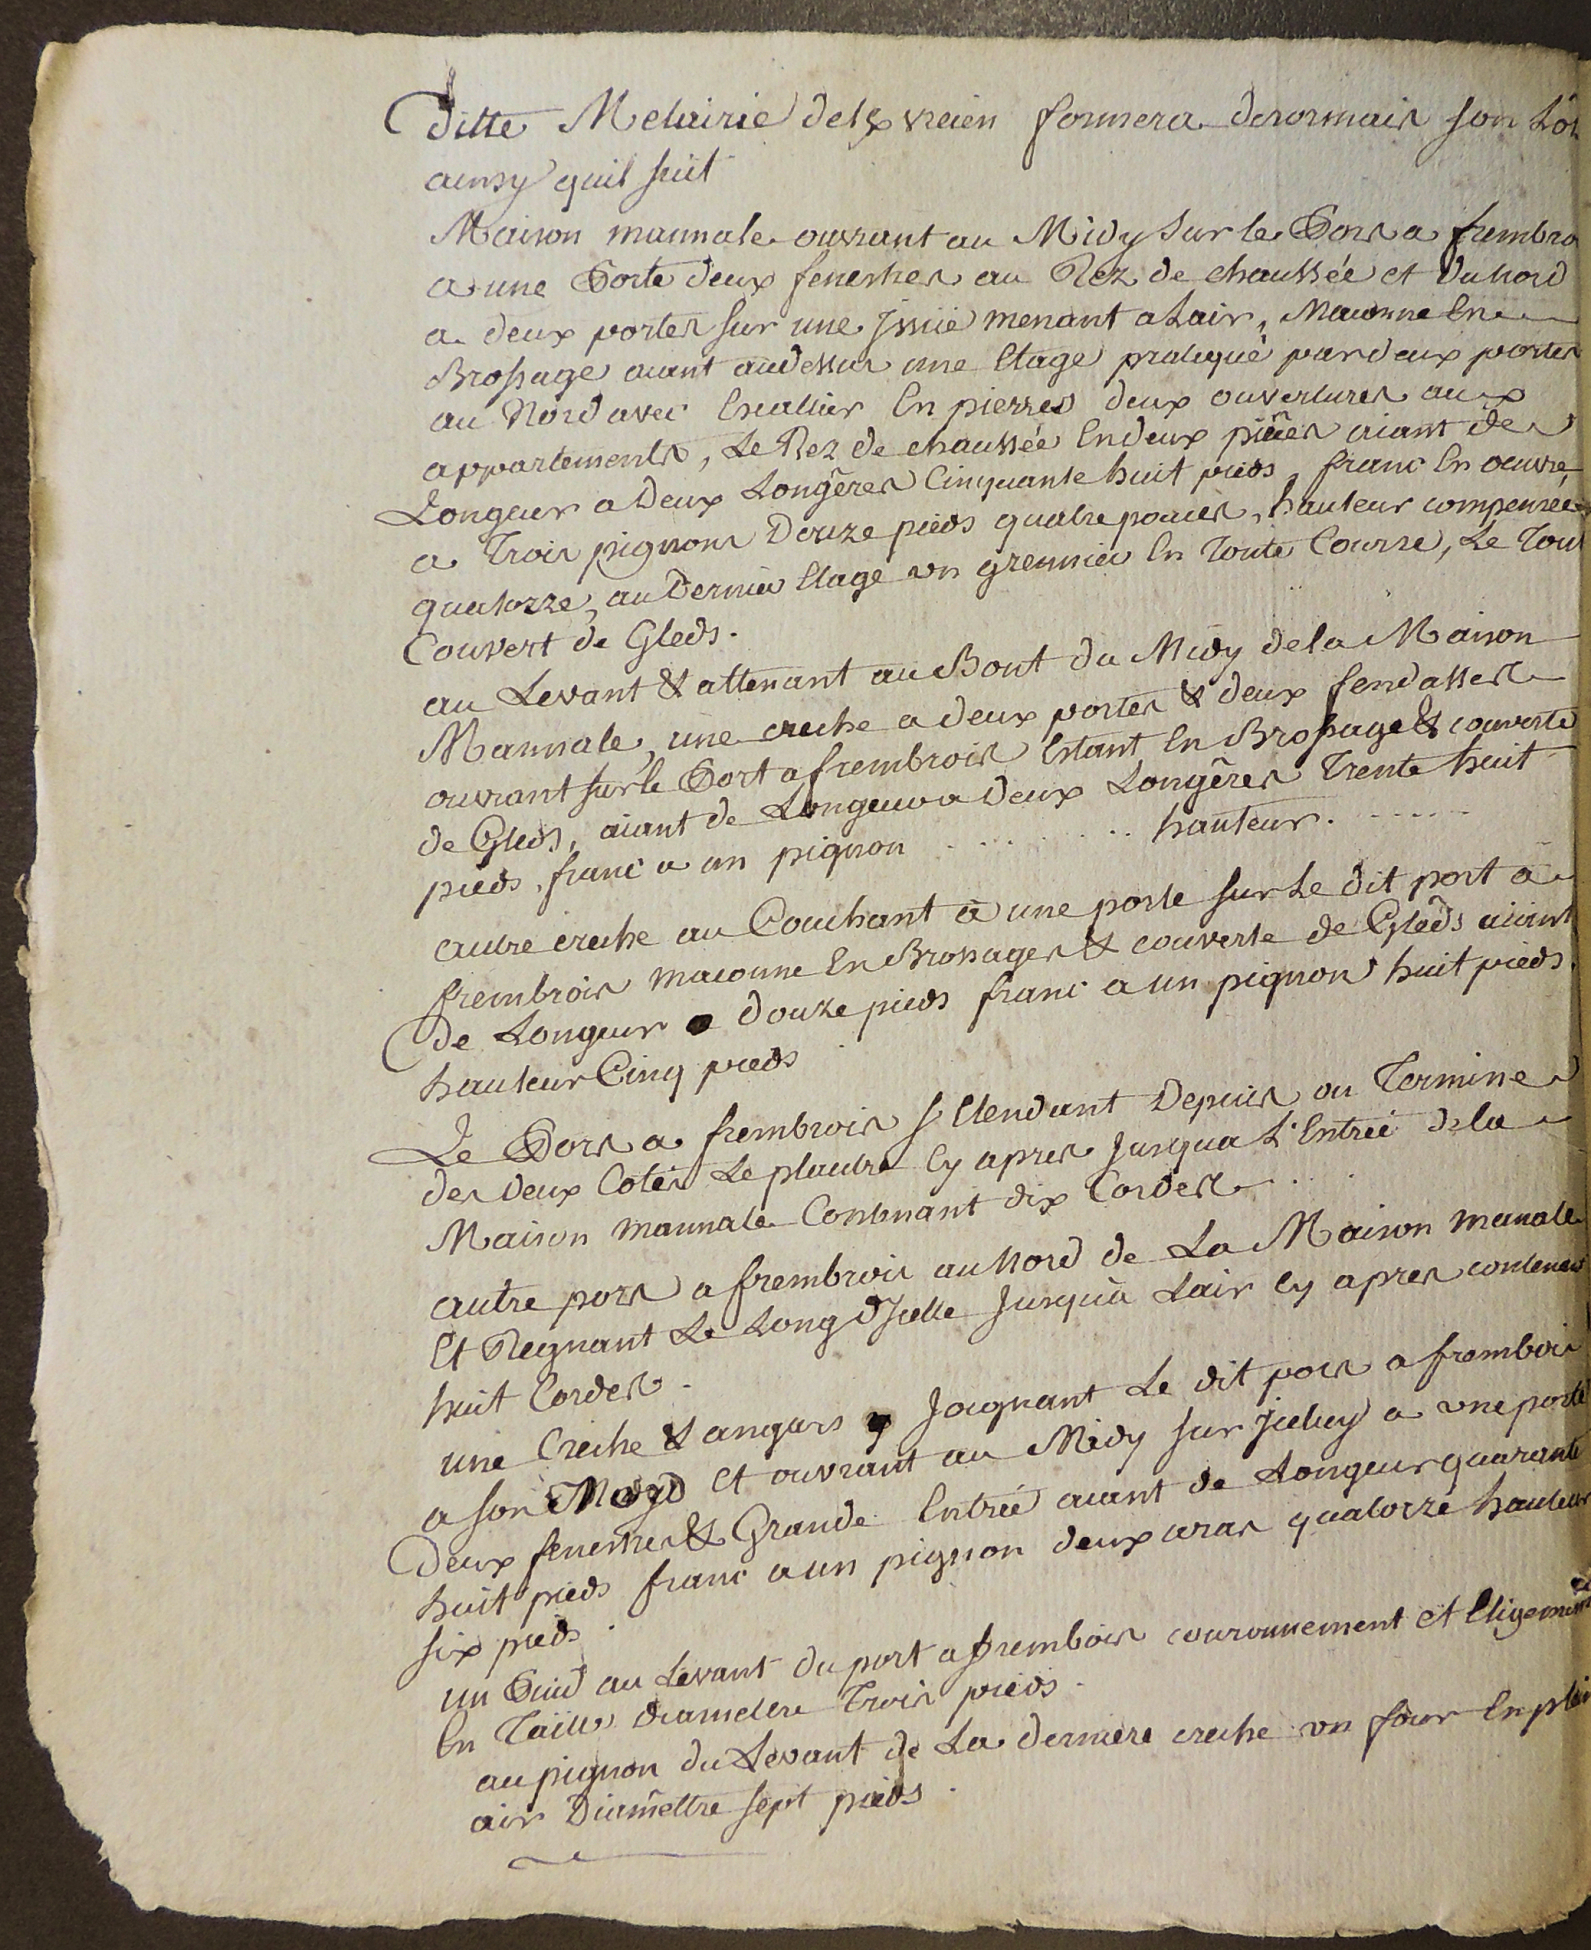 ditte Metairie formera desormais son Lot
ainsy quil suit
Maison mannale ouvrant au Midy sur le Pors a frembro
a une Porte deux fenestres au Rez de chaussée et du nord
a deux portes sur une issüe menant a Lair, Maconne En
Brossage aiant audessus une Etage pratiqué par deux portes
au Nord avec Escallier En pierres deux ouvertures aux
appartements, Le Rez de chaussée En deux pièces aiant de
Longeur a Deux Longêres Cinquante huit pieds, franc En oeuvre
a Trois pignons Douze pieds quatre pouces, hauteur compensée
quatorze, au Dernier Etage un grennier En Toute Course, Le Tout
Couvert de Gleds.
au Levant & attenant au Bout du Midy de la Maison
Mannale, une creche a deux portes & deux fendasses
ouvrant sur le Port a frembrois Estant En Brossage & couverte
de Gleds, aiant de Longeur a Deux Longêres Trente huit
pieds, franc a un pignon ......... hauteur.......
autre creche au Couchant à une porte sur Le dit port a
frembrois maconne En Brossages & couverte de Gleds aiant
de Longeur a douze pieds franc a un pignon huit pieds.
hauteur Cinq pieds
Le Pors a frembrois s'Etendant Depuis ou Termine
des Deux Cotés Le placitre Cy apres Jusqua L'Entrée dela
Maison mannale Contenant dix Cordes
autre pors a frembrois au Nord de La Maison manale
Et Regnant Le Long d'Jcelle Jusqu'à Lair Cy apres contenant
huit Cordes.
une Creche & angars Joignant Le dit pors a frembois
a son Et ouvrant au Midy sur Jceluy a une porte
Deux fenestres & Grande Entrée aiant de Longeur quarante
huit pieds franc a un pignon deux aras quatorze hauteur
six pieds
un Puid au Levant du port a frembois couronnement et
En Taille diametre Trois pieds.
au pignon du Levant de La derniere creche un four En plein
air Diamêttre sept pieds.